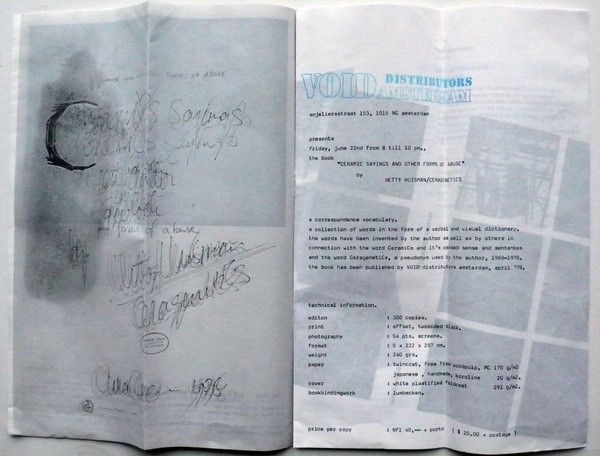 Ceramics Sayings
forms of abuse
Hetty Huisman
Ceragenetics
VOID DISTRIBUTORS
AMSTERDAM
anjeliersstraat 153, 1015 NG amsterdam
presents
friday, june 22nd from 8 till 10 pm.,
the book
"CERAMIC SAYINGS AND OTHER FORMS OF ABUSE"
by
HETTY HUISMAN/CERAGENETICS
a correspondence vocabulary.
a collection of words in the form of a verbal and visual dictionary.
the words have been invented by the author as well as by others in
connection with the word CeramiCs and it's passed sense and sentences
and the word CeragenetiCs, a pseudonym used by the author, 1968-1978.
the book has been published by VOID distributors amsterdam, april '79.
technical information.
editon : 300 copies.
print : offset, twosided black.
photography : 54 pts. screens.
format : 5 x 222 x 297 mm.
weight : 240 grs.
paper : twincoat, free from woodpulp, MC 170 g/m2.
japanese, handmade, kozoline 20 g/m2.
cover : white plastified foldcoat 291 g/m2.
bookbindingwork : lumbecken.
price per copy : Nfl 40,-- + porto ( $ 20.00 + postage )